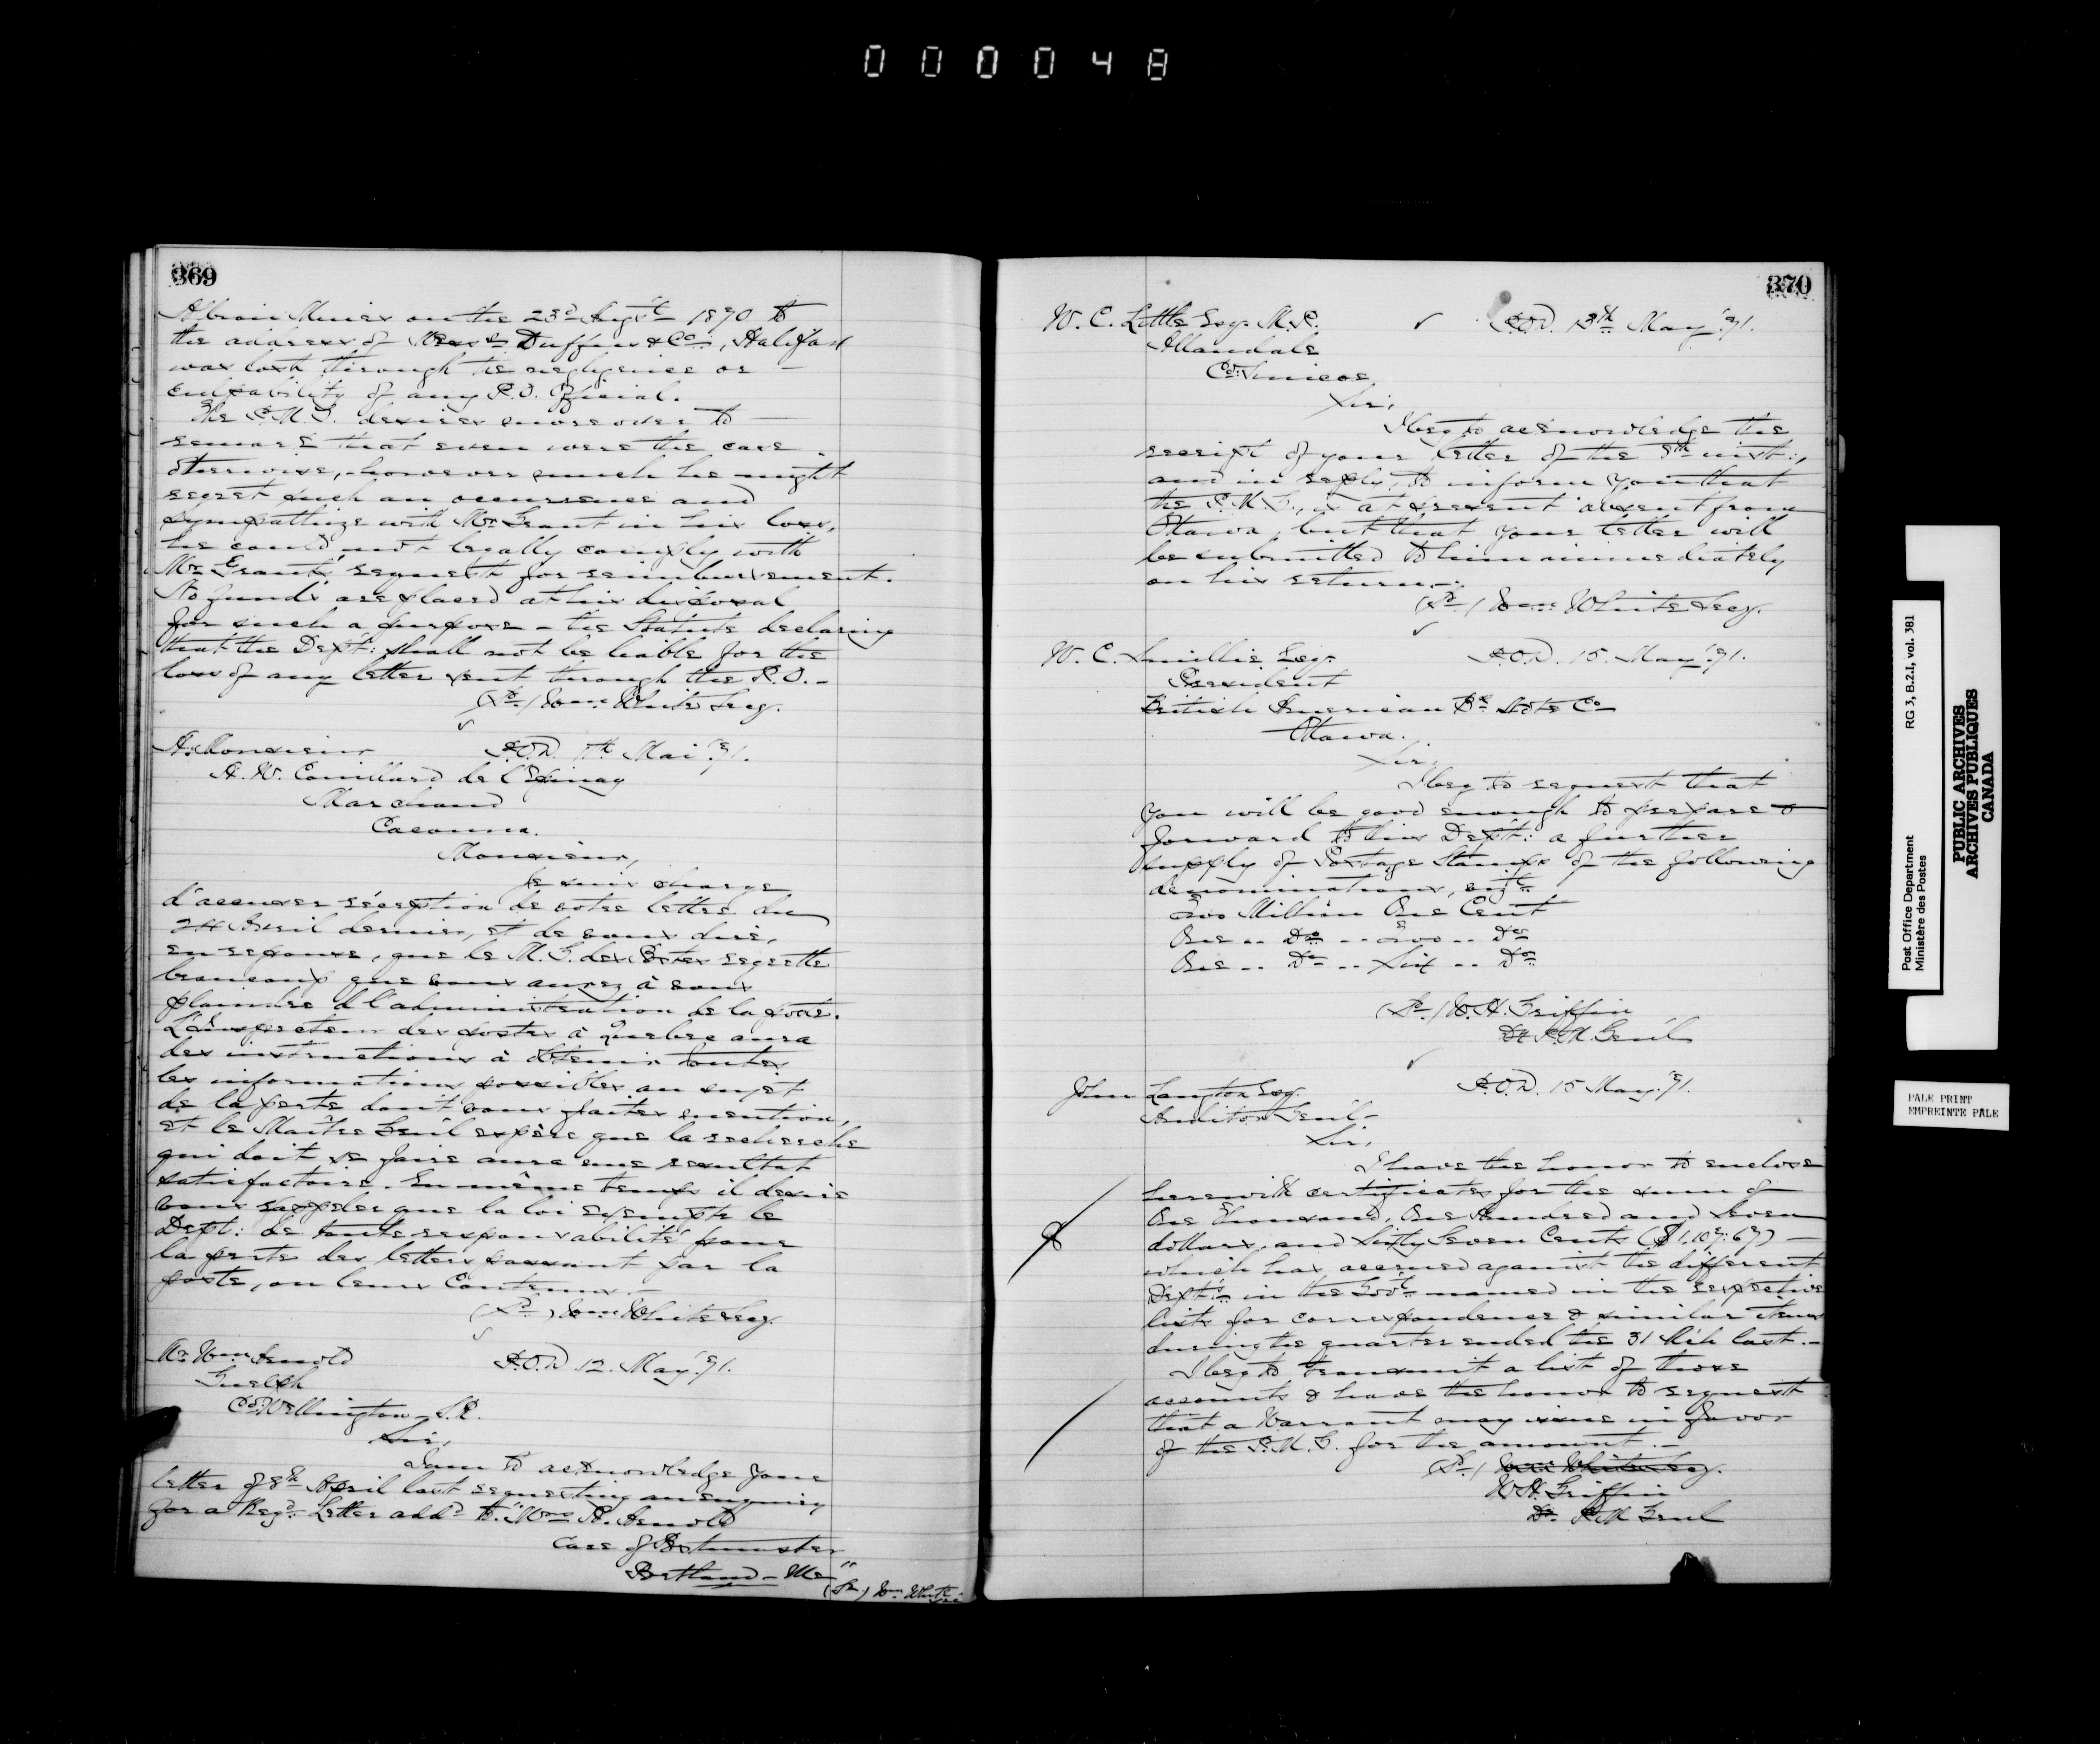 000048
369
Albion Mines on the 23d Augst 1870 to
the address of Messrs Duffus & Co:, Halifax
was lost through the negligence or -
culpability of any P.O. Official.
The P.M.G. desires moreover to -
remark that even were the case
otherwise, however much he might
regret such an occurrence and
sympathize with Mr Grant in his loss,
he could not legally comply with
Mr Grant's request for reimbursement.
No funds are placed at his disposal
for such a purpose - the Statute declaring
that the Dept: shall not be liable for the
loss of any letter sent through the P.O. -
(Sd) Wm White Secy.
A. Monsieur P.O.D. Mai '71.
A. W. Couillard de l'Epinay
Marchand
Cacouna.
Monsieur,
Je suis charge
d'accuser réception de votre lettre du
24 Avril dernier, et de vous dire,
en reponse, que le M. G. des Postes regrette
beaucoup que vous aurez à vous
plaindre d l'administration de la poste.
L'Inspecteur des postes à Quebec aura
des instructions à obtenir toutes
les informations possibles au sujet
de la perte dont vous faites mention,
et le Maître Genl espère que la recherche
qui doit se faire aura une resultat
satisfactoire. En même temps il desire
vous rappeler que la loi exempte le
Dept: de toute responsabilité pour
la perte des lettres passant par la
poste, ou leurs Contenus. -
(Sd) Wm White Secy.
Mr Wm Arnold P.O.D. 12. May '71.
Guelph
Co Wellington - S.R.
Sir,
I am to acknowledge your
letter of 8th April last requesting an enquiry
for a Regd Letter addd to "Mrs A. Arnold
Care of Postmaster
Portland - Me"
(Sd) Wm White Sec
370
W. C. Little Esqr M.P. P.O.D. 13th May '71.
Allandale
Co: Simcoe
Sir,
I beg to acknowledge the
receipt of your letter of the inst:,
and in reply, to inform you that
the P.M.G., is at present absent from
Ottawa, but that your letter will
be submitted to him immediately
on his return. -
(Sd) Wm White Secy.
W. C. Smillie Esqr P.O.D. 15. May '71.
President
British American Bk Note Co
Ottawa.
Sir,
I beg to request that
you will be good enough to prepare &
forward to this Dept: a further
supply of Postage Stamps of the following
denominations, vizt
Two Million One Cent
One .. Do .. Two .. Do
One .. Do .. Six .. Do
(Sd) W. H. Griffin
Dy P.M. Genl
John Langton Esq. P.O.D. 15 May '71.
Auditor Genl -
Sir,
I have the honor to enclose
herewith certificates for the sum of
One Thousand, One Hundred and Seven
dollars, and Sixty Seven Cents ($1,107:67) -
which has accrued against the different
Depts in the Govt named in the respective
lists for correspondence & similar items
during the quarter ended the 31 Mch last. -
I beg to transmit a list of those
accounts & have the honor to request
that a Warrant may issue in favor
of the P.M.G. for the amount. -
(Sd) Wm White Secy.
W H. Griffin
Dy P M Genl
Post Office Department RG 3, B.2.1, vol. 381
Ministère des Postes
PUBLIC ARCHIVES
ARCHIVES PUBLIQUES
CANADA
PALE PRINT
EMPREINTE PÂLE